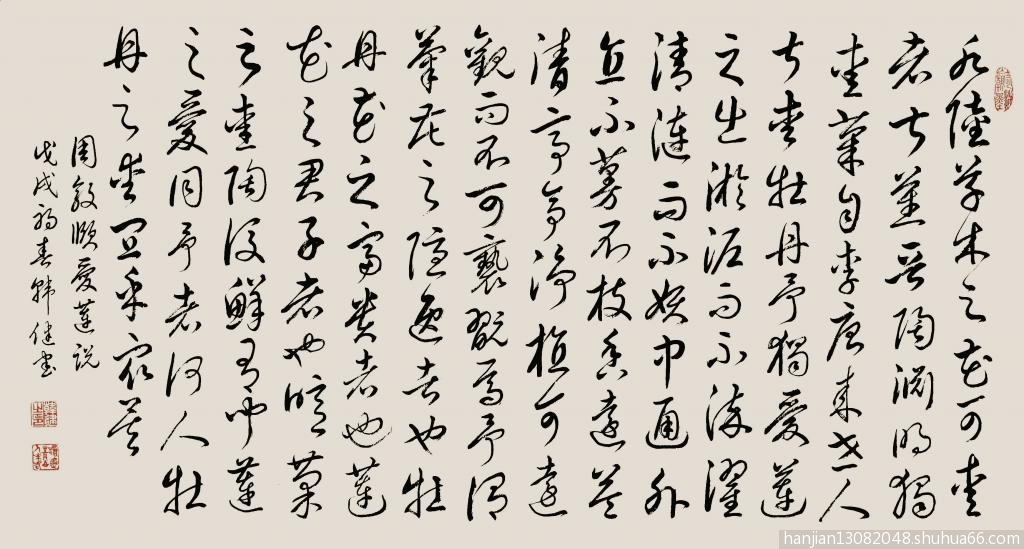 水陸草木之花可愛
者甚蕃晉陶淵明獨
愛菊自李唐來世人
甚愛牡丹予獨愛蓮
之出淤泥而不染濯
清漣而不妖中通外
直不蔓不枝香遠益
清亭亭淨植可遠
觀而不可褻翫焉予謂
菊花之隱逸者也牡
丹花之富貴者也蓮
花之君子者也噫菊
之愛陶後鮮有聞蓮
之愛同予者何人牡
丹之愛宜乎眾矣
周敦頤愛蓮説
戊戌初春韩健书
hanjian13082048.shuhua66.com